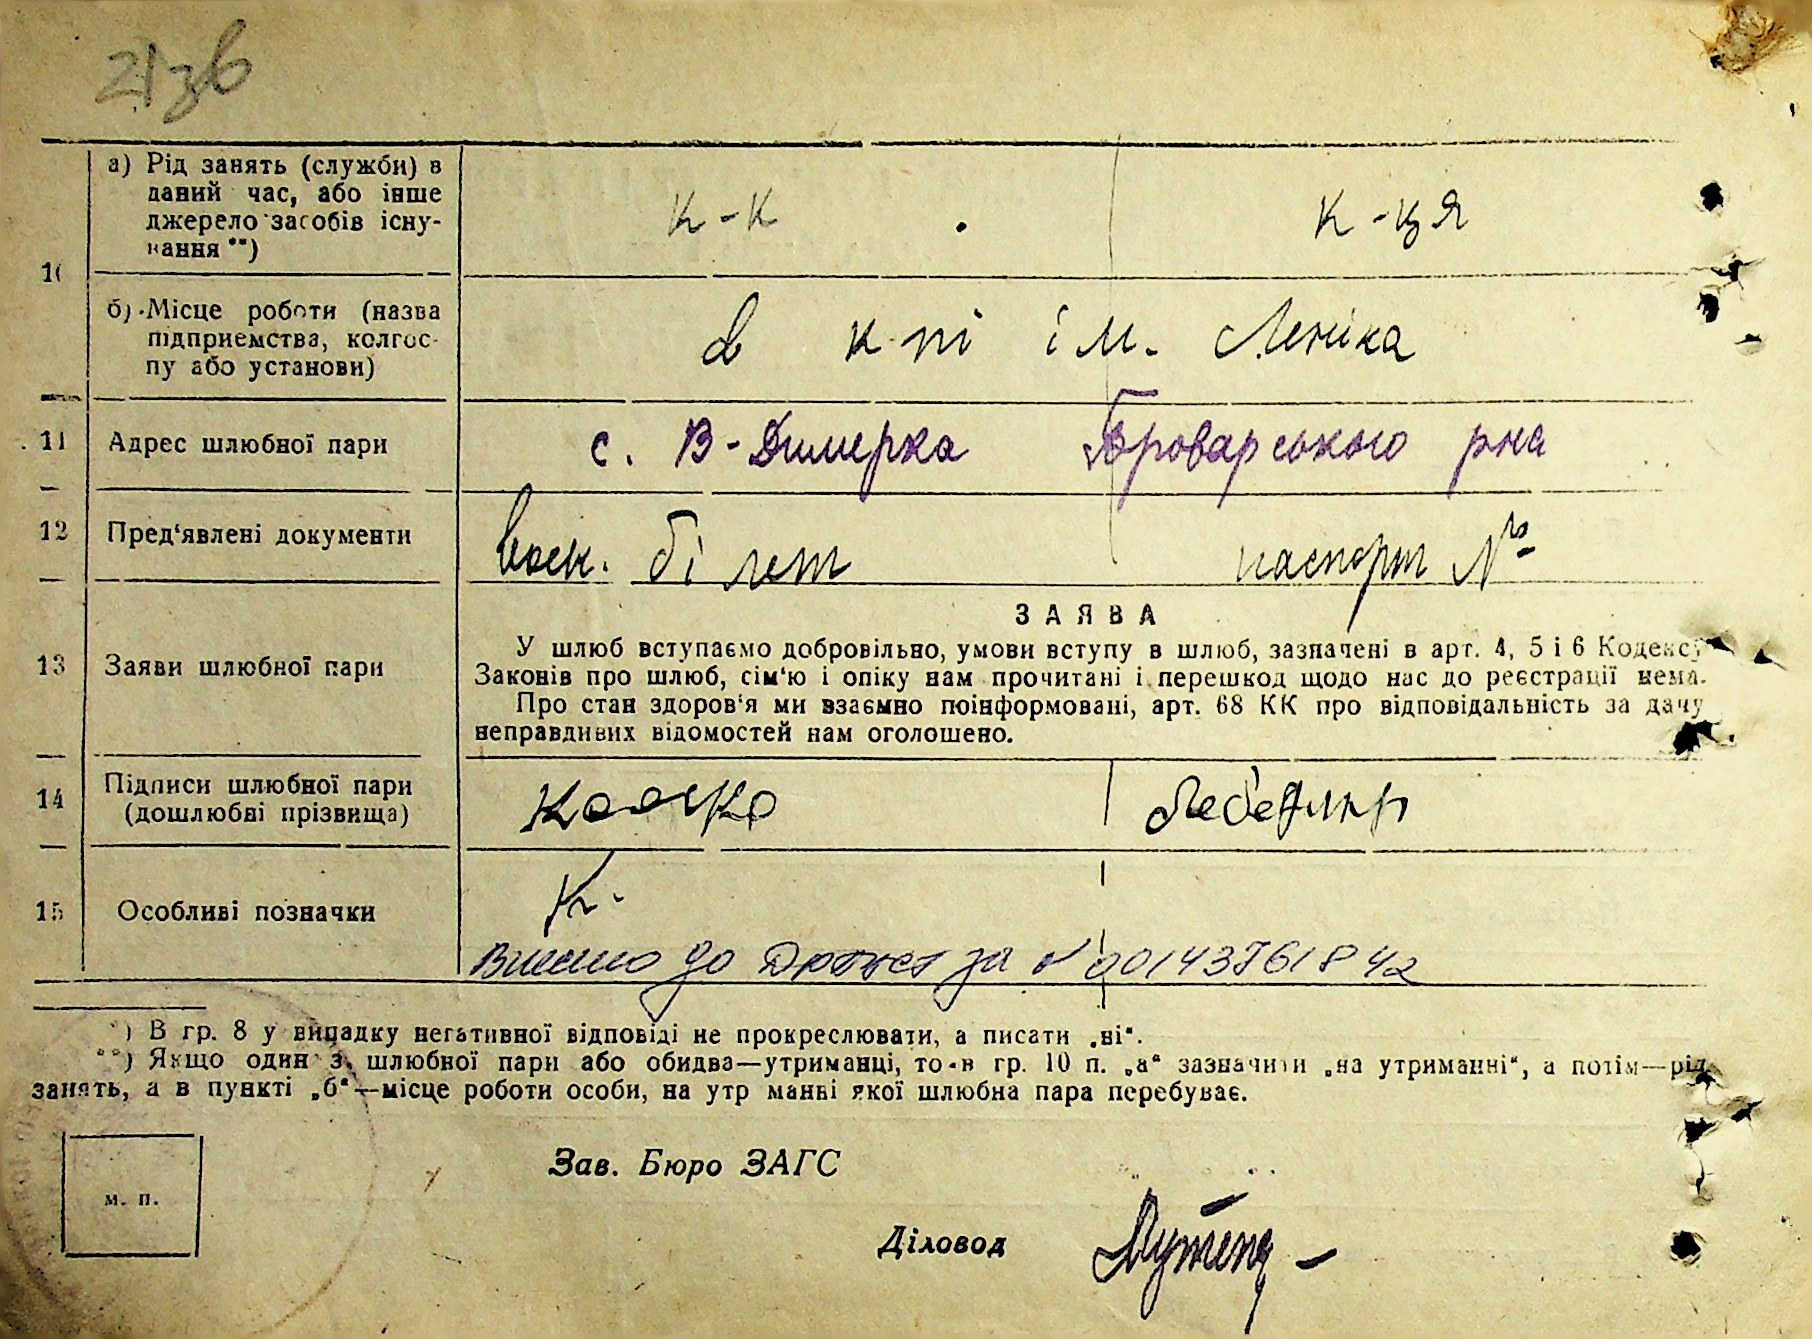 21зв
а) Рід занять (служби) в
даний час, або інше
джерело засобів існу-
вання **)
к-к к-ця
10
б) Місце роботи (назва
підприємства, колгос-
пу або установи)
в к-пі ім. Леніна
11 Адрес шлюбної пари с. В-Димерка Броварського рна
12 Пред'явлені документи воєн. білет паспорт №
ЗАЯВА
13 Заяви шлюбної пари
У шлюб вступаємо добровільно, умови вступу в шлюб, зазначені в арт. 4, 5 і 6 Кодексу
Законів про шлюб, сім'ю і опіку нам прочитані і перешкод щодо нас до реєстрації нема.
Про стан здоров'я ми взаємно поінформовані, арт. 68 КК про відповідальність за дачу
неправдивих відомостей нам оголошено.
14 Підписи шлюбної пари
(дошлюбні прізвища)
15 Особливі позначки
К.
Внесено до за № 00143761842
*) В гр. 8 у випадку негативної відповіді не прокреслювати, а писати „ні“.
**) Якщо один з шлюбної пари або обидва—утриманці, то в гр. 10 п. „а“ зазначити „на утриманні“, а потім—рід
занять, а в пункті „б“—місце роботи особи, на утр манні якої шлюбна пара перебуває.
Зав. Бюро ЗАГС
м. п.
Діловод